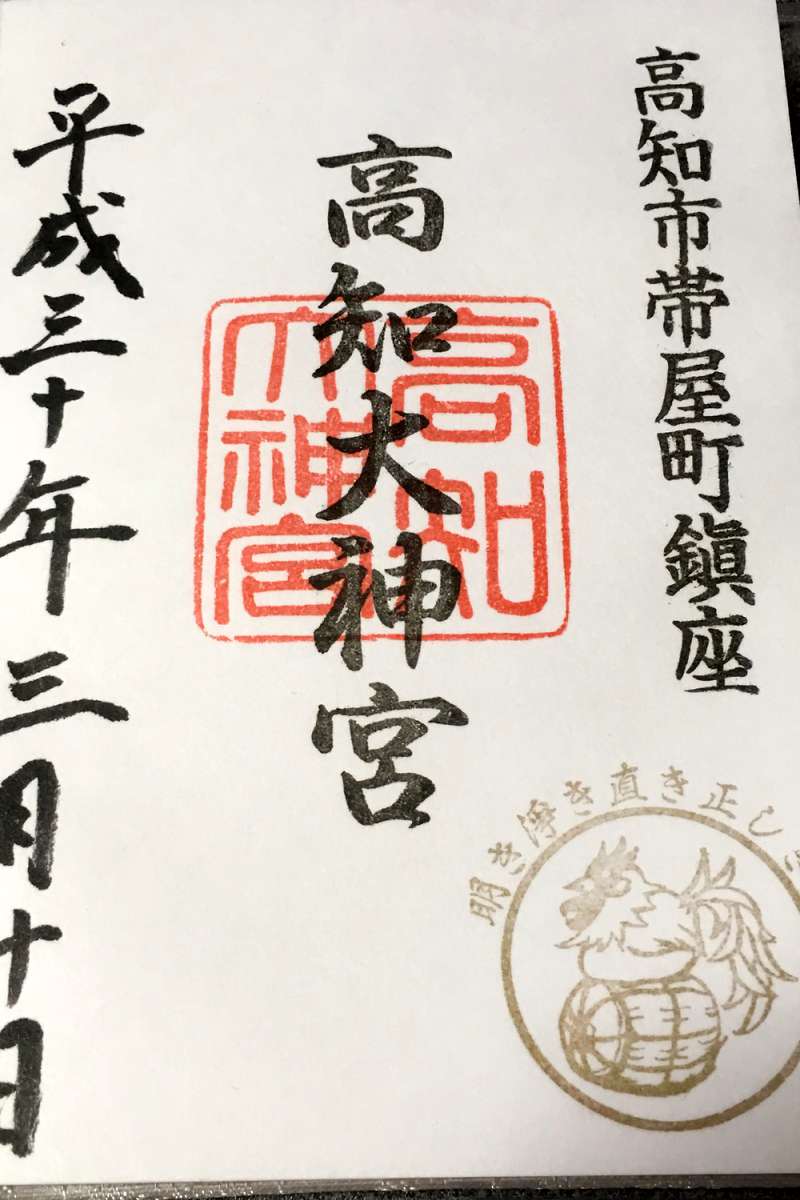 高知市帯屋町鎭座
高知大神宮
高知
大神宮
平成三十年三月十日
明き浄き直き正し